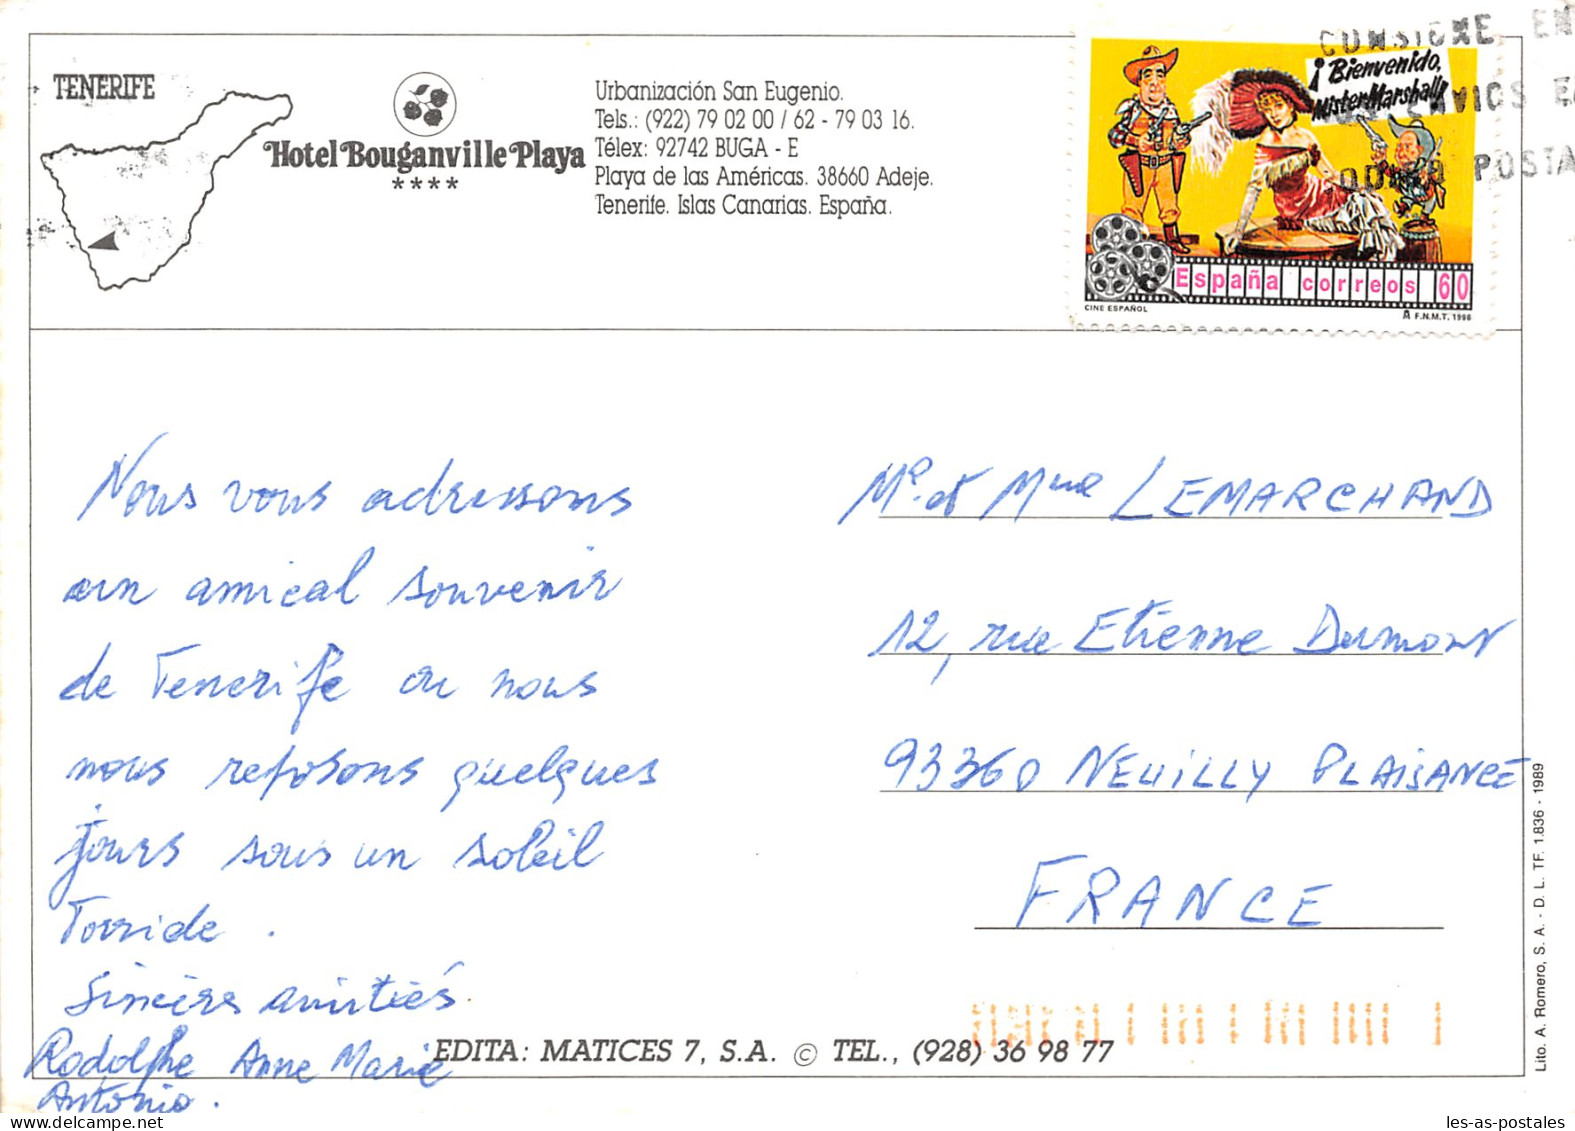 TENERIFE
Hotel Bouganville Playa
****
Urbanización San Eugenio.
Tels.: (922) 79 02 00 / 62 - 79 03 16.
Télex: 92742 BUGA - E
Playa de las Américas. 38660 Adeje.
Tenerife. Islas Canarias. España.
CONSIGNE EN
POSTA
¡Bienvenido,
Mister Marshall!
España correos 60
CINE ESPAÑOL
F.N.M.T. 1996
Nous vous adressons
un amical souvenir
de Tenerife ou nous
nous reposons quelques
jours sous un soleil
Torride.
Sincères amitiés.
Rodolphe Anne Marie
Antonio.
Mr. et Mme LEMARCHAND
12, rue Etienne Dumont
93360 NEUILLY PLAISANCE
FRANCE
EDITA: MATICES 7, S.A. © TEL., (928) 36 98 77
Lito. A. Romero, S. A. - D. L. TF. 1.836 - 1989
les-as-postales